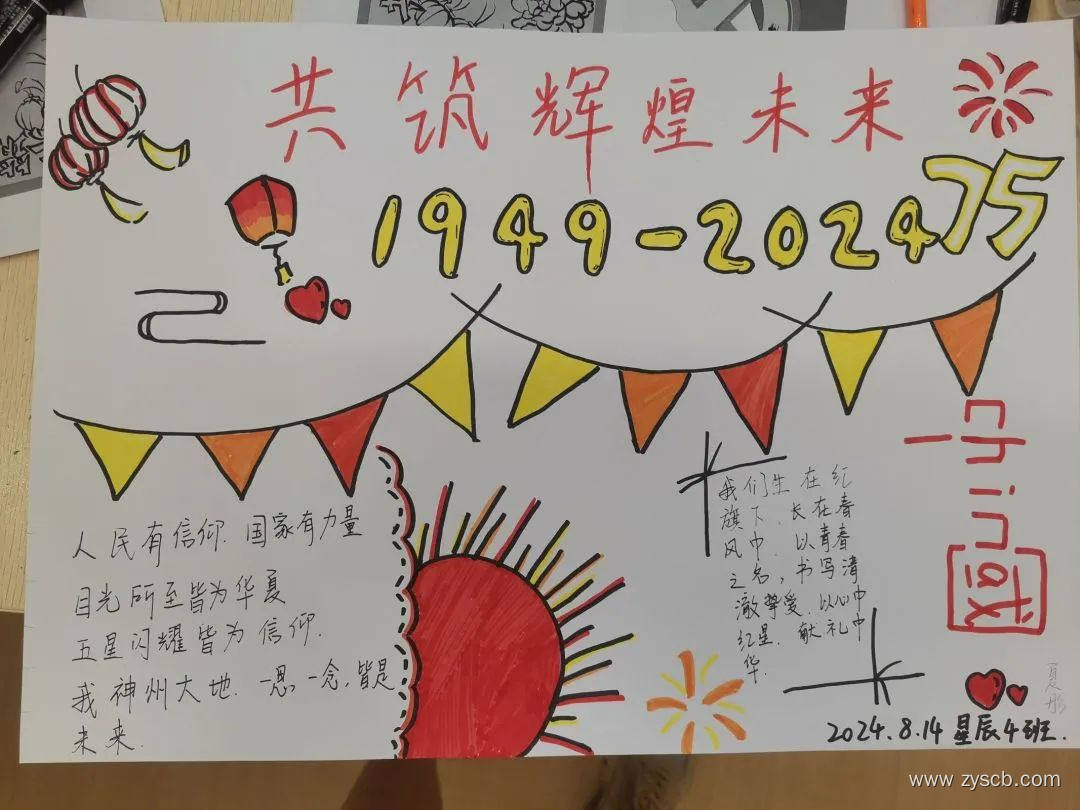 共筑辉煌未来
1949-2024 75
人民有信仰.国家有力量
目光所至皆为华夏
五星闪耀皆为信仰.
我神州大地.一思,一念,皆是
未来.
我们生在红
旗下.长在春
风中.以青春
之名,书写清
澈挚爱.以心中
红星.献礼中
华.
china
夏彤
2024.8.14 星辰4班.
www.zyscb.com